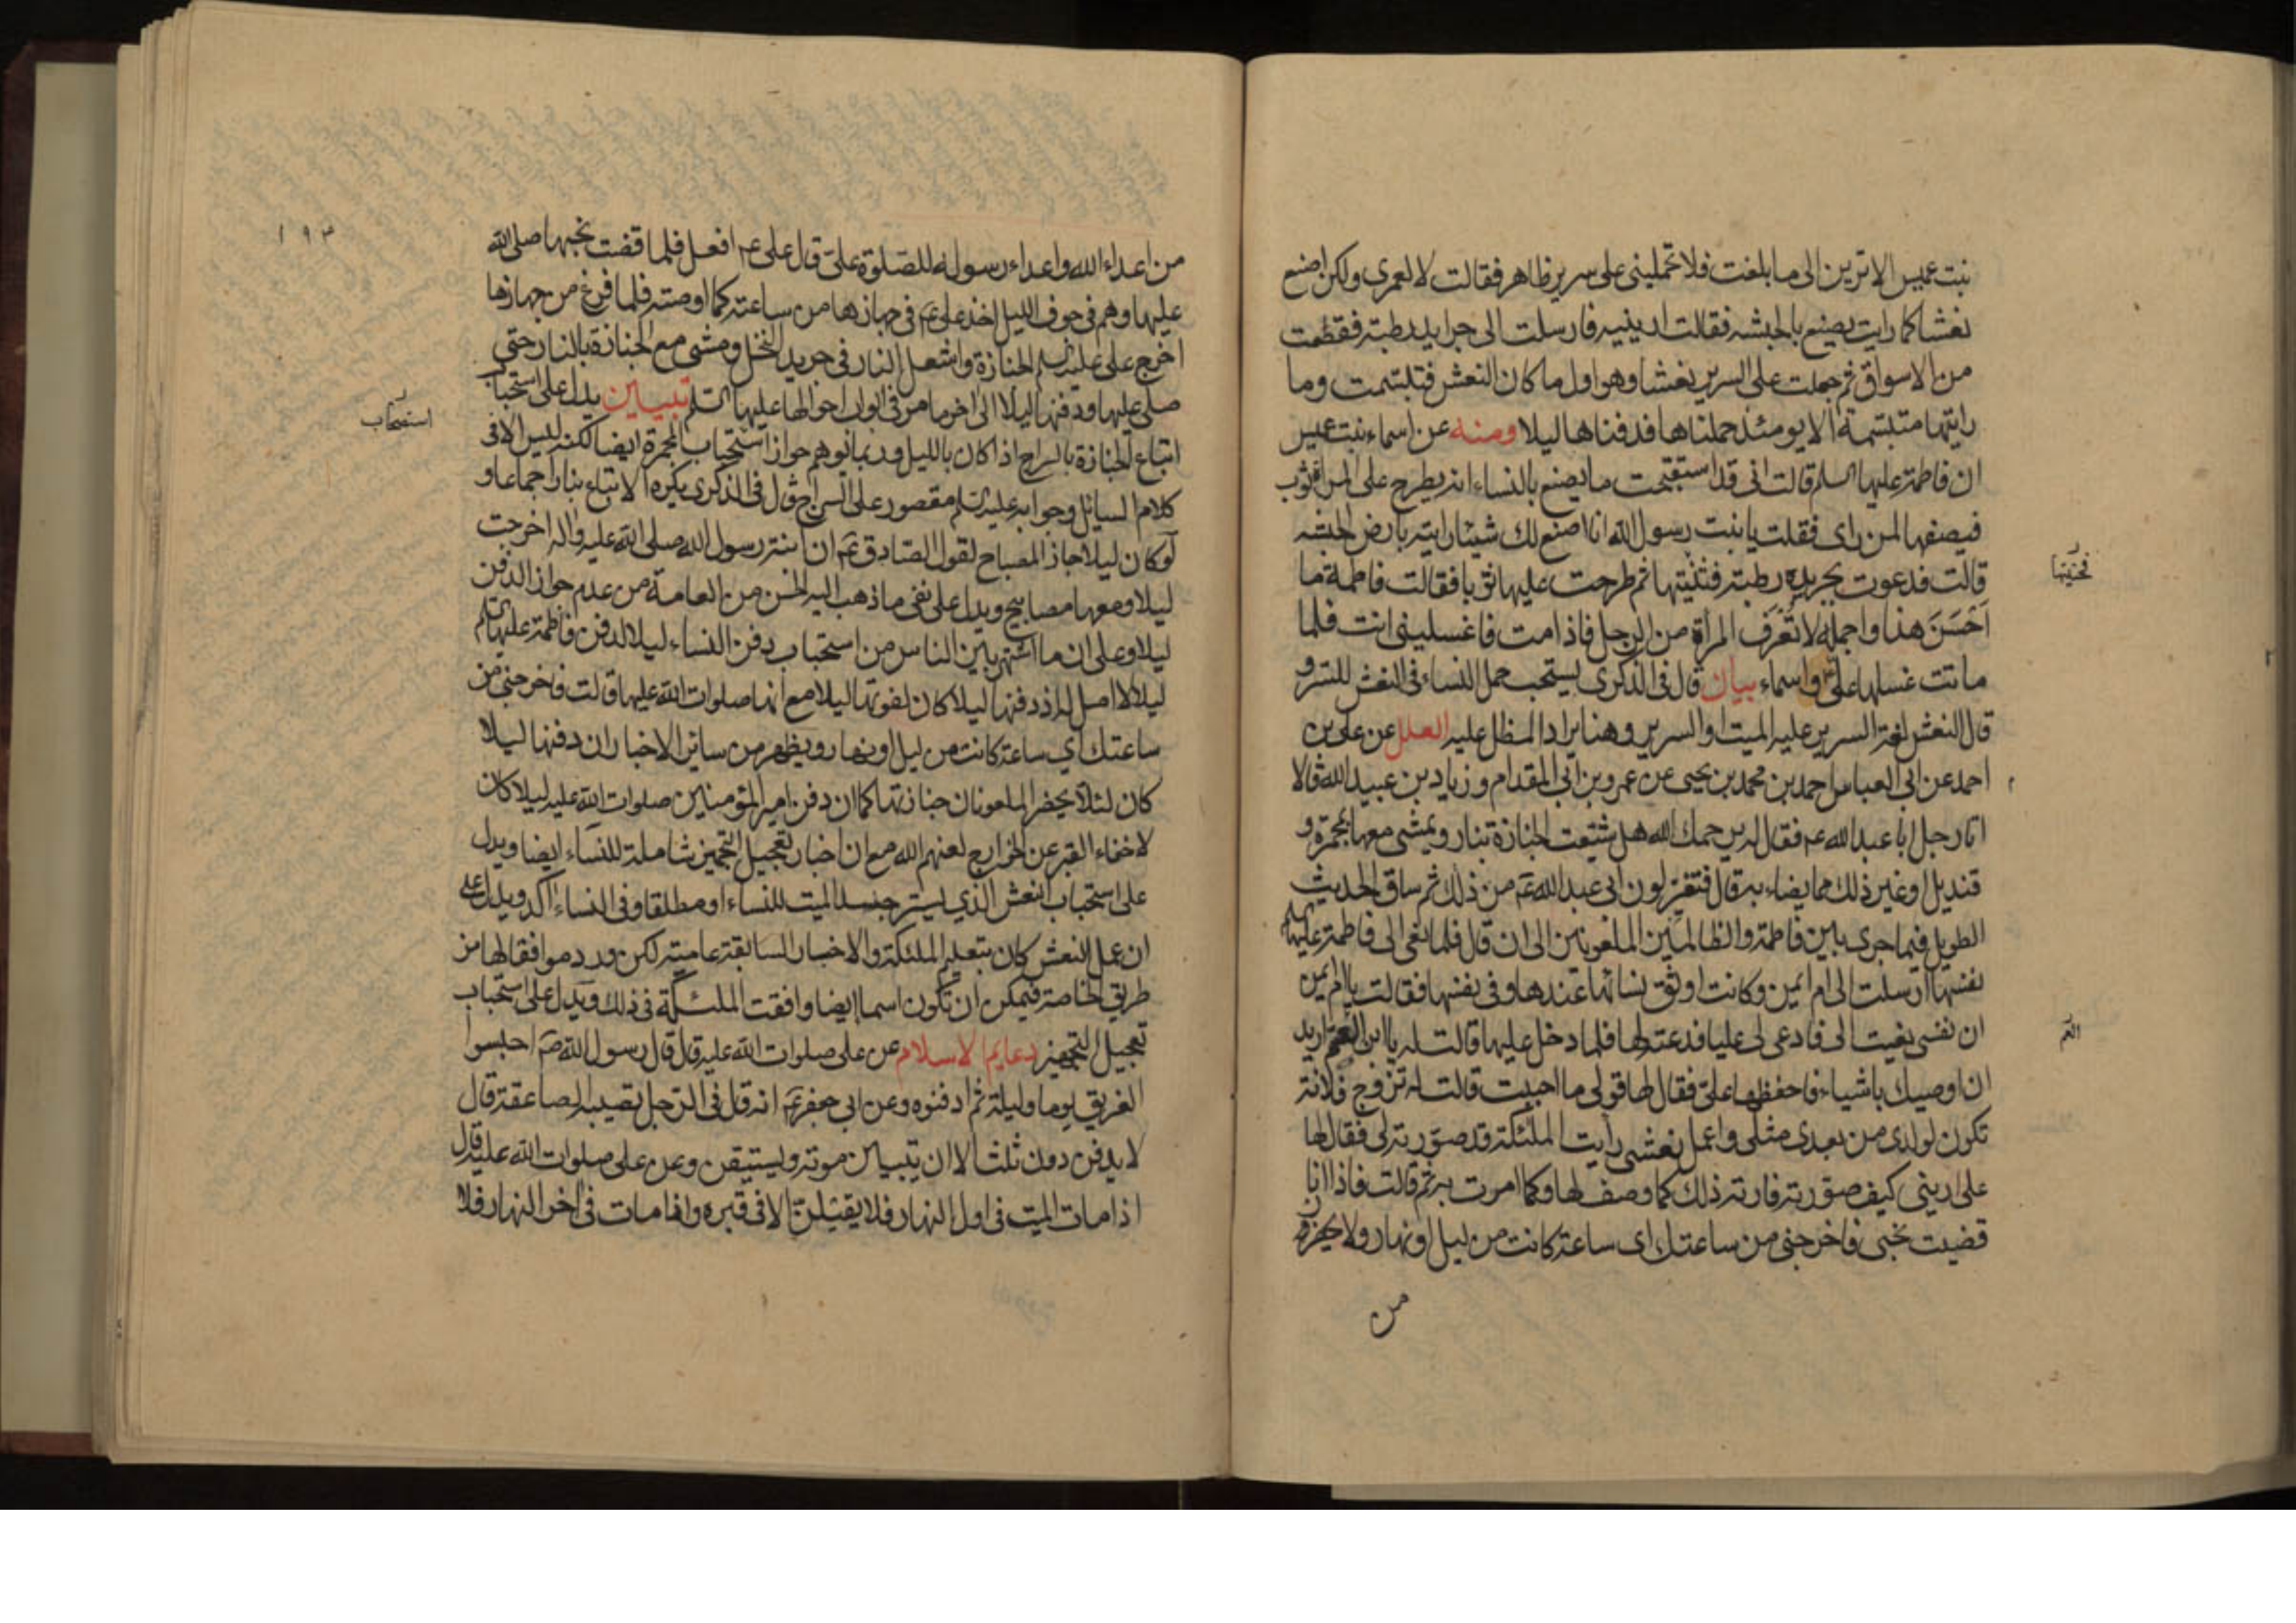 بنت عميس الا ترين الى ما بلغت فلا تحمليني على سرير ظاهر فقالت لا لعمرى ولكن اصنع
نعشا كما رايت يصنع بالحبشه فقالت ارينيه فارسلت الى جرايد رطبة فقطعت
من الاسواق ثم جعلت على السرير نعشا وهو اول ما كان النعش فتبسمت وما
رايتها متبسمة الا يومئذ حملناها فدفناها ليلا ومنه عن اسماء بنت عميس
ان فاطمة عليها السلم قالت انى قد استقبحت ما يصنع بالنساء انه يطرح على المراة ثوب
فيصفها لمن راى فقلت يا بنت رسول الله انا اصنع لك شيئا رايته بارض الحبشه
قالت فدعوت بجريدة رطبة فثنيتها ثم طرحت عليها ثوبا فقالت فاطمة ما
فحنيتها
احسن هذا واجمله لا تعرف المراة من الرجل فاذا مت فاغسليني انت فلما
ماتت غسلها على واسماء بيان قال فى الذكرى يستحب حمل النساء فى النعش للستر و
قال النعش لغة السرير عليه الميت او السرير وهنا يراد المظلل عليه العلل عن على بن
احمد عن ابى العباس احمد بن محمد بن يحيى عن عمرو بن ابى المقدام وزياد بن عبيد الله قالا
اتا رجل ابا عبد الله ع فقال له يرحمك الله هل شيعت الجنازة بنار ويمشى معها بمجمرة و
قنديل او غير ذلك مما يضاء به قال فتغير لون ابى عبد الله ع من ذلك ثم ساق الحديث
الطويل فيما جرى بين فاطمة والظالمين الملعونين الى ان قال فلما نعى الى فاطمة عليها السلم
نفسها ارسلت الى ام ايمن وكانت اوثق نسائها عندها وفى نفسها فقالت يا ام ايمن
ان نفسى نعيت الى فادعى لى عليا فدعته لها فلما دخل عليها قالت له يا ابن العم اريد
العم
ان اوصيك باشياء فاحفظها على فقال لها قولى ما احببت قالت له تزوج فلانة
تكون لولدى من بعدى مثلى واعمل نعشى رايت الملئكة قد صورته لى فقال لها
على اريني كيف صورته فارته ذلك كما وصف لها وكما امرت به ثم قالت فاذا انا
قضيت نحبى فاخرجنى من ساعتك اى ساعة كانت من ليل او نهار ولا يحضرن
من
١٩٣
من اعداء الله واعداء رسوله للصلوة على قال على ع افعل فلما قضت نحبها صلى الله
عليها وهم فى جوف الليل اخذ على ع فى جهازها من ساعته كما اوصته فلما فرغ من جهازها
اخرج على عليه السلم الجنازة واشعل النار فى جريد النخل ومشى مع الجنازة بالنار حتى
صلى عليها ودفنها ليلا الى اخر ما مر فى ابواب احوالها عليها السلم تبيين يدل على استحباب
استصحاب
اتباع الجنازة بالسراج اذا كان بالليل وربما توهم جواز استحباب المجمرة ايضا لكنه ليس الا فى
كلام السائل وجوابه عليه السلم مقصور على السراج قال فى الذكرى يكره الاتباع بنار اجماعا و
لو كان ليلا جاز المصباح لقول الصادق ع ان ابنة رسول الله صلى الله عليه واله اخرجت
ليلا ومعها مصابيح ويدل على نفى ما ذهب اليه الحسن من العامة من عدم جواز الدفن
ليلا وعلى ان ما اشتهر بين الناس من استحباب دفن النساء ليلا لدفن فاطمة عليها السلم
ليلا لا اصل له اذ دفنها ليلا كان لفوتها ليلا مع انها صلوات الله عليها قالت فاخرجنى من
ساعتك اي ساعة كانت من ليل او نهار ويظهر من سائر الاخبار ان دفنها ليلا
كان لئلا يحضر الملعونان جنازتها كما ان دفن امير المؤمنين صلوات الله عليه ليلا كان
لاخفاء القبر عن الخوارج لعنهم الله مع ان اخبار تعجيل التجهيز شاملة للنساء ايضا ويدل
على استحباب النعش الذي يستر جسد الميت للنساء او مطلقا وفى النساء اكد ويدل على
ان عمل النعش كان بتعليم الملئكة والاخبار السابقة عامية لكن ورد موافقا لها من
طريق الخاصة فيمكن ان تكون اسما ايضا وافقت الملئكة فى ذلك ويدل على استحباب
تعجيل التجهيز دعايم الاسلام عن على صلوات الله عليه قال قال رسول الله ص احبسوا
الغريق يوما وليلة ثم ادفنوه وعن ابى جعفر ع انه قال فى الرجل تصيبه الصاعقة قال
لا يدفن دون ثلث الا ان يتبين موته ويستيقن وعن على صلوات الله عليه قال
اذا مات الميت فى اول النهار فلا يقيلن الا فى قبره واذا مات فى اخر النهار فلا